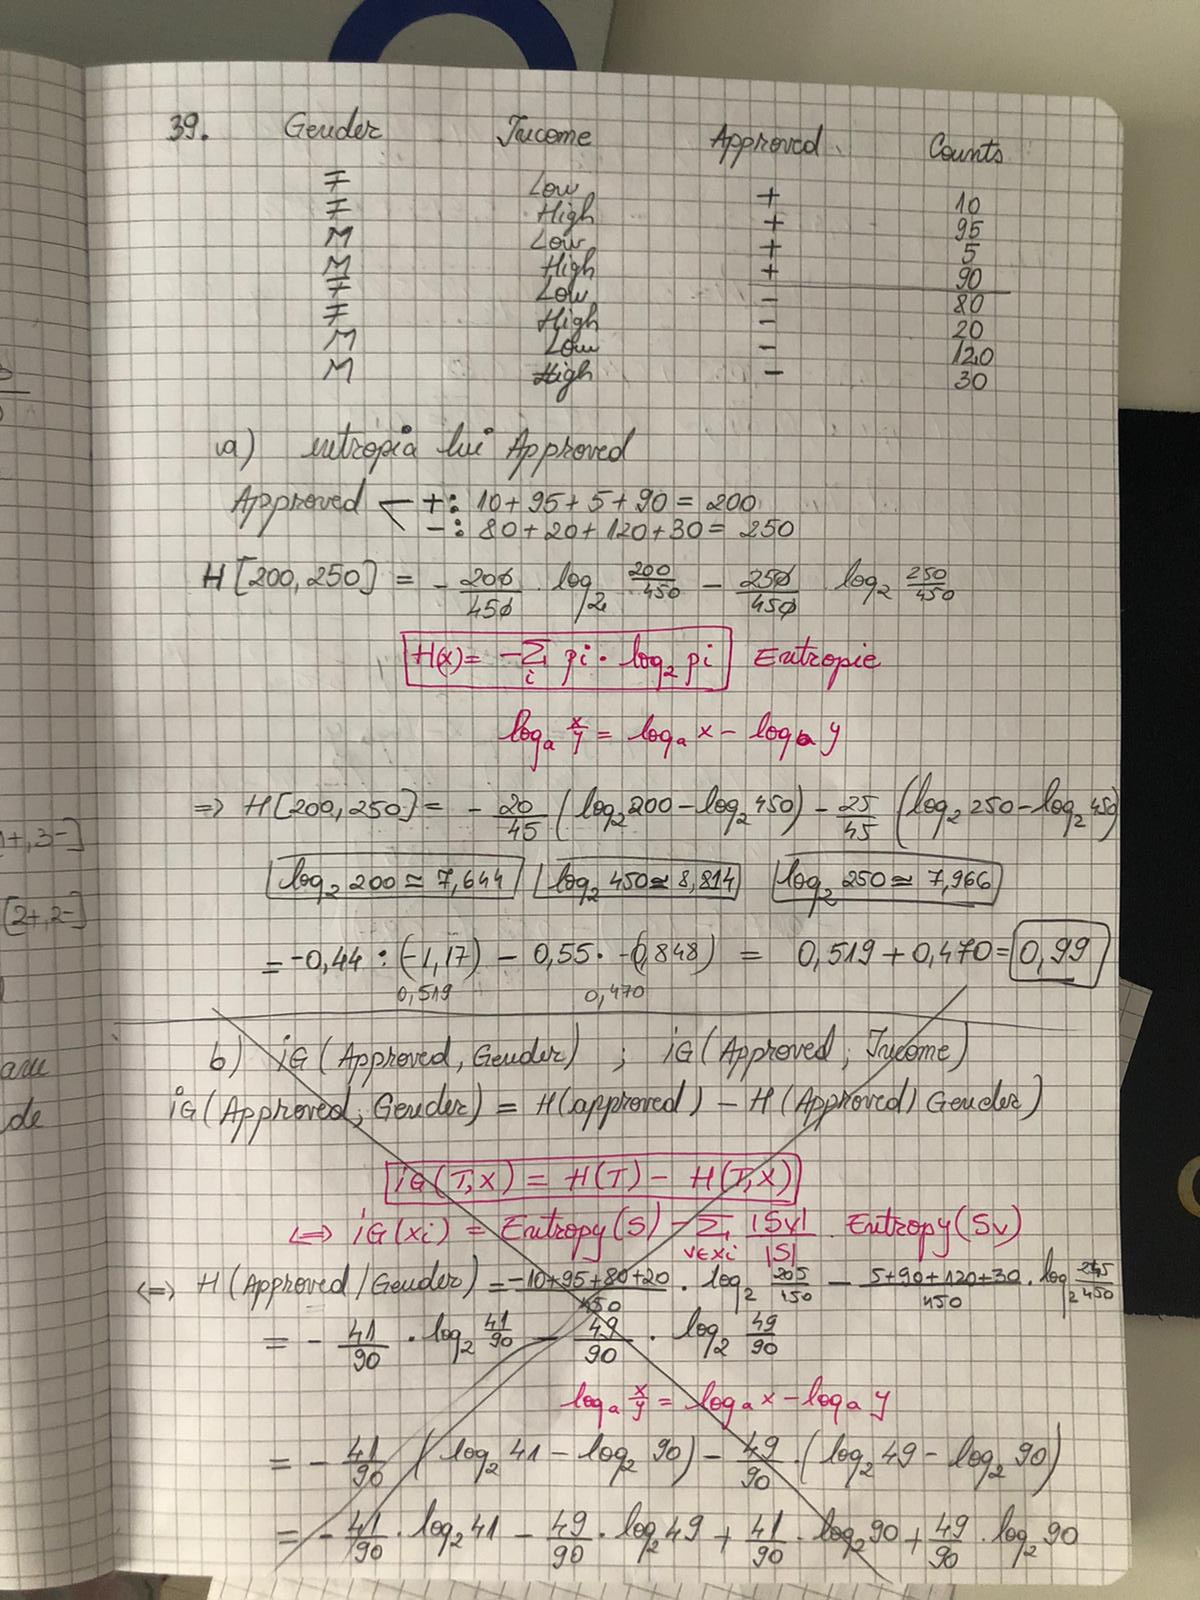 39. Gender Income Approved Counts
F Low + 10
F High + 95
M Low + 5
M High + 90
F Low - 80
F High - 20
M Low - 120
M High - 30
a) entropia lui Approved
Approved +: 10+95+5+90 = 200
-: 80+20+120+30 = 250
H[200,250] = - 200/450 · log₂ 200/450 - 250/450 · log₂ 250/450
H(x) = -Σᵢ pi · log₂ pi Entropie
logₐ x/y = logₐ x - logₐ y
=> H[200,250] = - 20/45 (log₂ 200 - log₂ 450) - 25/45 (log₂ 250 - log₂ 450)
log₂ 200 ≃ 7,644 log₂ 450 ≃ 8,814 log₂ 250 ≃ 7,966
= -0,44 · (-1,17) - 0,55 · -0,848) = 0,519 + 0,470 = 0,99
0,519 0,470
b) iG(Approved, Gender) ; iG(Approved, Income)
iG(Approved, Gender) = H(approved) - H(Approved) Gender)
iG(T,x) = H(T) - H(T,x)
<=> iG(xi) = Entropy(S) - Σ v∈xi |Sv|/|S| Entropy(Sv)
<=> H(Approved/Gender) = -10+95+80+20/450 · log₂ 205/450 - 5+90+120+30/450 · log₂ 245/450
= - 41/90 · log₂ 41/90 - 49/90 · log₂ 49/90
logₐ x/y = logₐ x - logₐ y
= - 41/90 (log₂ 41 - log₂ 90) - 49/90 · (log₂ 49 - log₂ 90)
= - 41/90 · log₂ 41 - 49/90 · log₂ 49 + 41/90 · log₂ 90 + 49/90 · log₂ 90
+,3-]
[2+,2-]
de